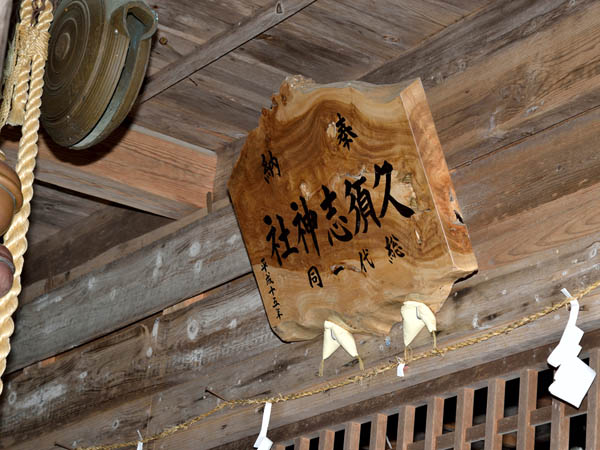 奉納
久須志神社
総代一同
平成十五年